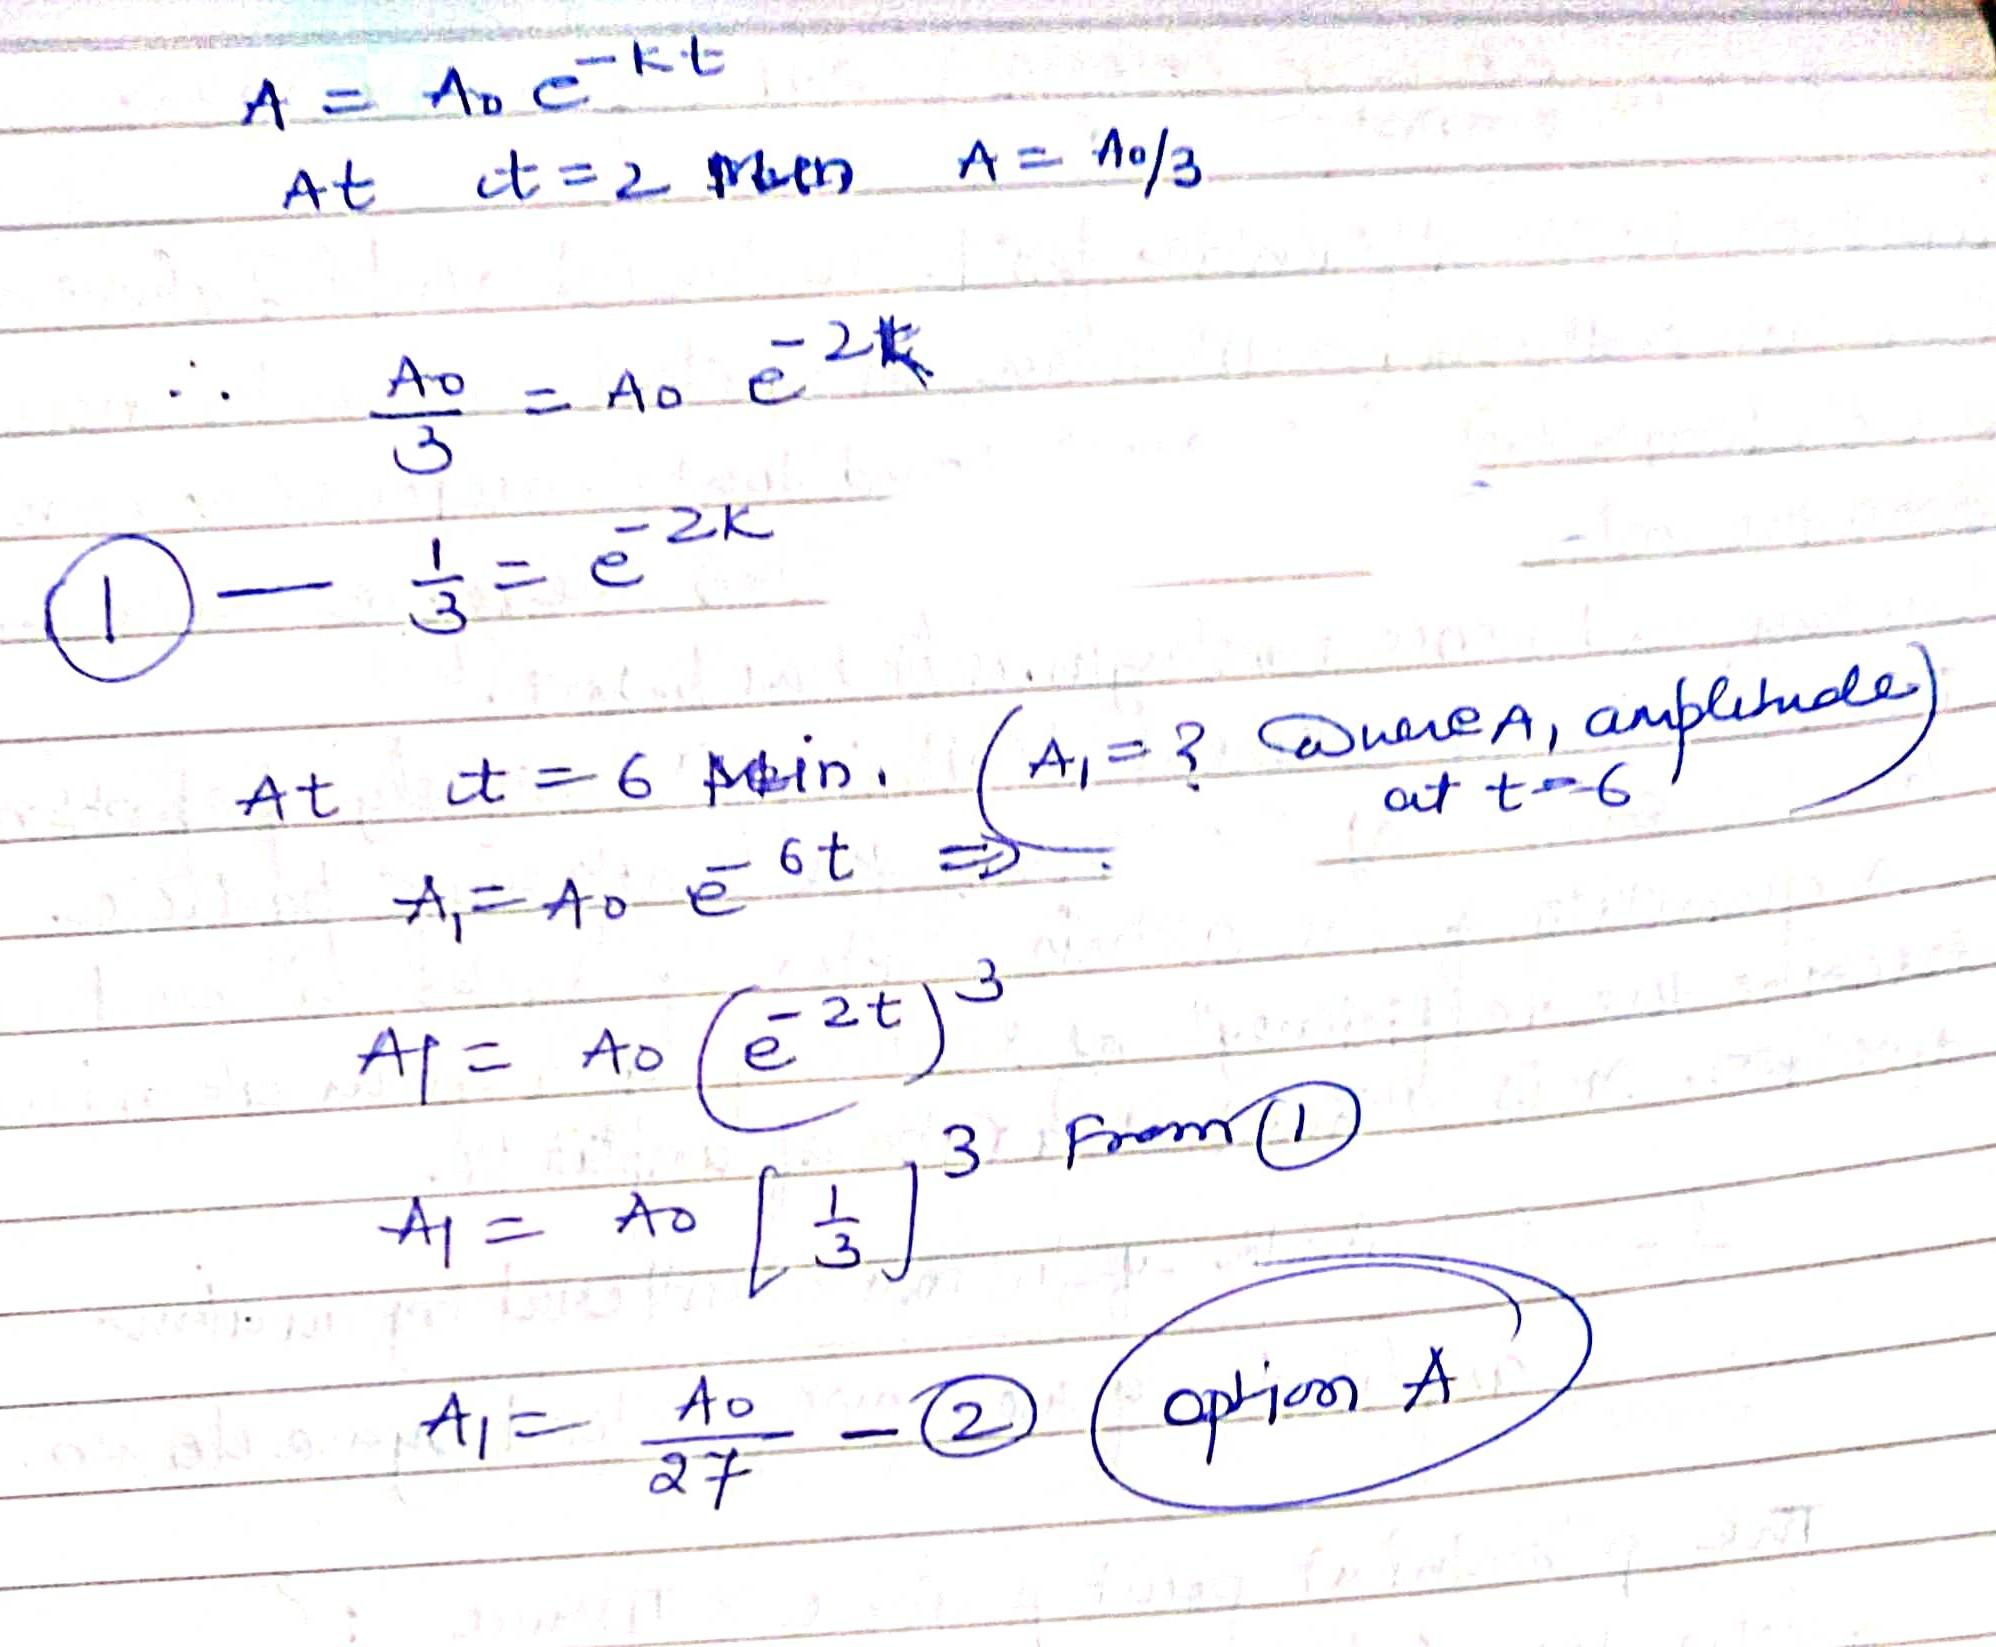 A = A₀ e^-kt
At t = 2 Min A = A₀/3
∴ A₀/3 = A₀ e^-2k
① — 1/3 = e^-2K
At t = 6 Min. (A₁ = ? where A₁ amplitude)
at t = 6
A₁ = A₀ e^-6t ⇒
A₁ = A₀ (e^-2t)^3
A₁ = A₀ [1/3]^3 From ①
A₁ = A₀/27 - ② option A